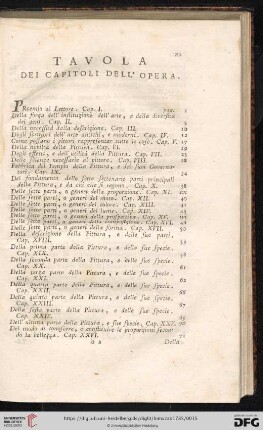 TAVOLA
DEI CAPITOLI DELL'OPERA.
PRoemio al Lettore. Cap. I. pag. 1
Della forza dell'instituzione dell'arte, e della diversità
dei genj. Cap. II.
Della necessità della discrezione. Cap. III. 10
Degli scrittori dell'arte antichi, e moderni. Cap. IV. 12
Come possano i pittori rappresentar tutte le cose. Cap. V. 17
Della nobiltà della Pittura. Cap. VI. 19
Degli offici, e dell'utilità della Pittura. Cap. VII. 23
Delle scienze necessarie al pittore. Cap. VIII.
Fabbrica del Tempio della Pittura, e dei suoi Governa-
tori. Cap. IX.
Del fondamento delle sette settenarie parti principali
della Pittura, e da chi elle si reggono. Cap. X. 38
Delle sette parti, o generi della proporzione. Cap. XI.
Delle sette parti, o generi del moto. Cap. XII.
Delle sette parti, o generi del colore. Cap. XIII.
Delle sette parti, o generi del lume. Cap. XIV.
Delle sette parti, o generi della prospettiva. Cap. XV.
Delle sette parti, o generi della composizione. Cap. XVI.
Delle sette parti, o generi della forma. Cap. XVII. 50
Della descrizione della Pittura, e delle sue parti.
Cap. XVIII.
Della prima parte della Pittura, e delle sue spezie.
Cap. XIX.
Della seconda parte della Pittura, e delle sue spezie.
Cap. XX.
Della terza parte della Pittura, e delle sue spezie.
Cap. XXI.
Della quarta parte della Pittura, e delle sue spezie.
Cap. XXII.
Della quinta parte della Pittura, e delle sue spezie.
Cap. XXIII.
Della sesta parte della Pittura, e delle sue spezie.
Cap. XXIV.
Dell'ultima parte della Pittura, e sue spezie. Cap. XXV. 70
Del modo di conoscere, e constituire le proporzioni secon-
do la bellezza. Cap. XXVI. 72
Della
UNIVERSITÄTS-
BIBLIOTHEK
HEIDELBERG
DFG